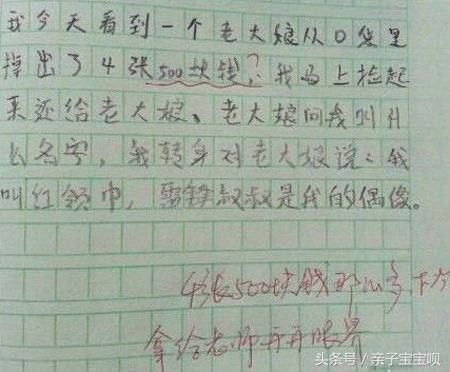 我今天看到一个老大娘从口袋里
掉出了4张500块钱，?我马上捡起
来还给老大娘、老大娘问我叫什
么名字，我转身对老大娘说：我
叫红领巾，雷锋叔叔是我的偶像。
4张500块钱那么多下次
拿给老师开开眼界
头条号／亲子宝宝呗